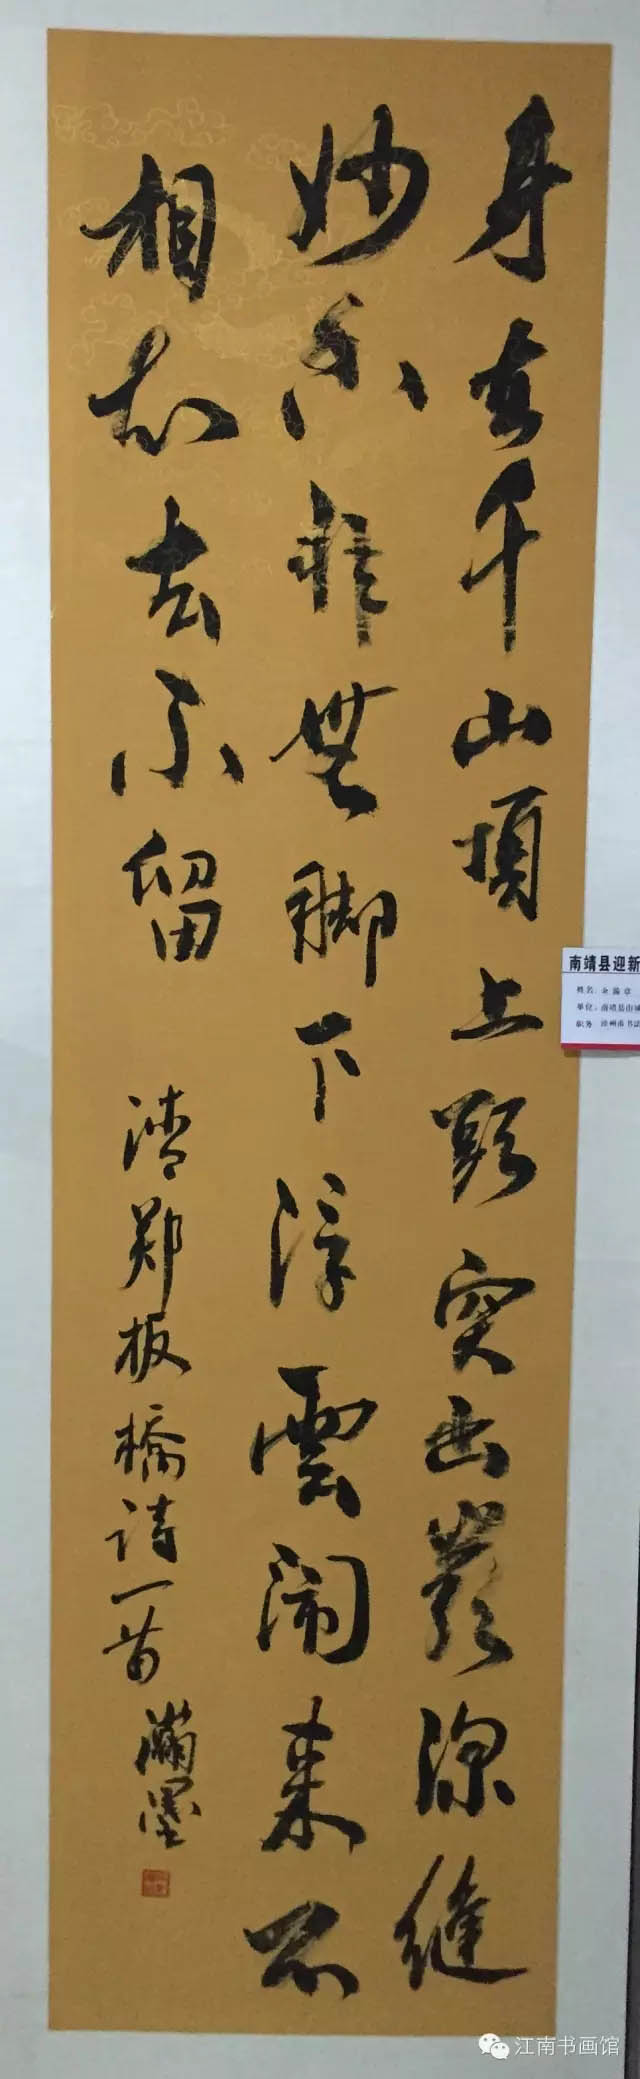 身在千山頂上頭突出巖深縫
妙香非無脚下浮雲闹来不
相知去不留
清郑板橋诗一首 瀚墨
南靖县迎新
姓名:
单位:南靖县山城
职务 漳州市书法
江南书画馆